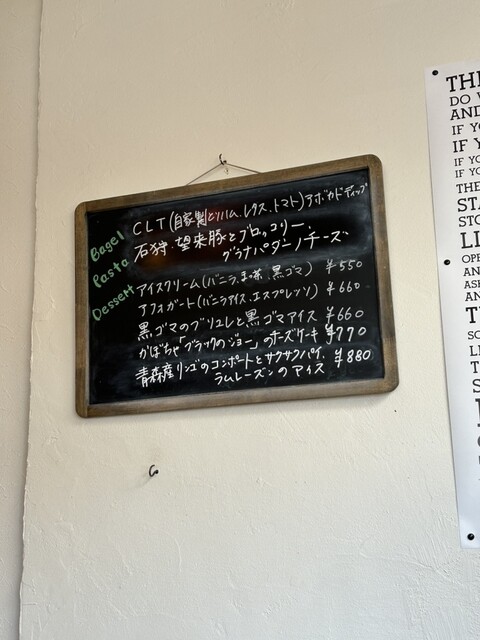 Bagel CLT(自家製とりハム、レタス、トマト)アボカドディップ
Pasta 石狩・望来豚とブロッコリー、
グラナパダーノチーズ
Dessert アイスクリーム(バニラ、抹茶、黒ゴマ) ¥550
アフォガート(バニラアイス、エスプレッソ) ¥660
黒ゴマのブリュレと黒ゴマアイス ¥660
かぼちゃ「ブラックのジョー」のチーズケーキ ¥770
青森産リンゴのコンポートとサクサクパイ、 ¥880
ラムレーズンのアイス
DO
AND
IF
IF
IF
IF
THE